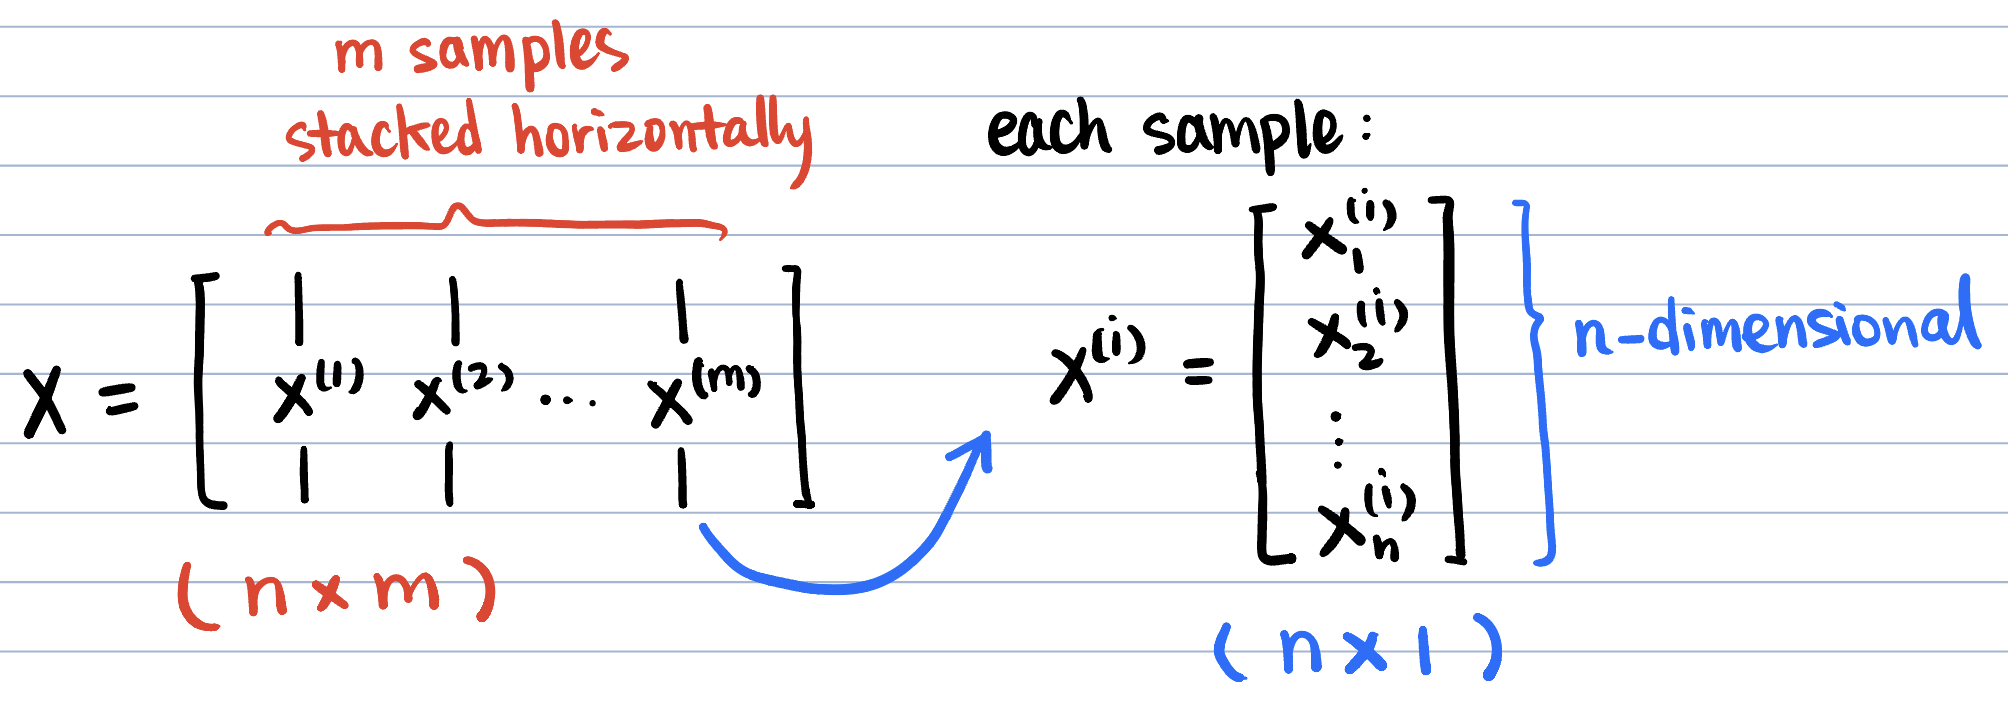 m samples
stacked horizontally
X = [ | | | x^(1) x^(2) ... x^(m) | | | ]
(n × m)
each sample:
x^(i) = [ x_1^(i) x_2^(i) ⋮ x_n^(i) ]
n-dimensional
(n × 1)